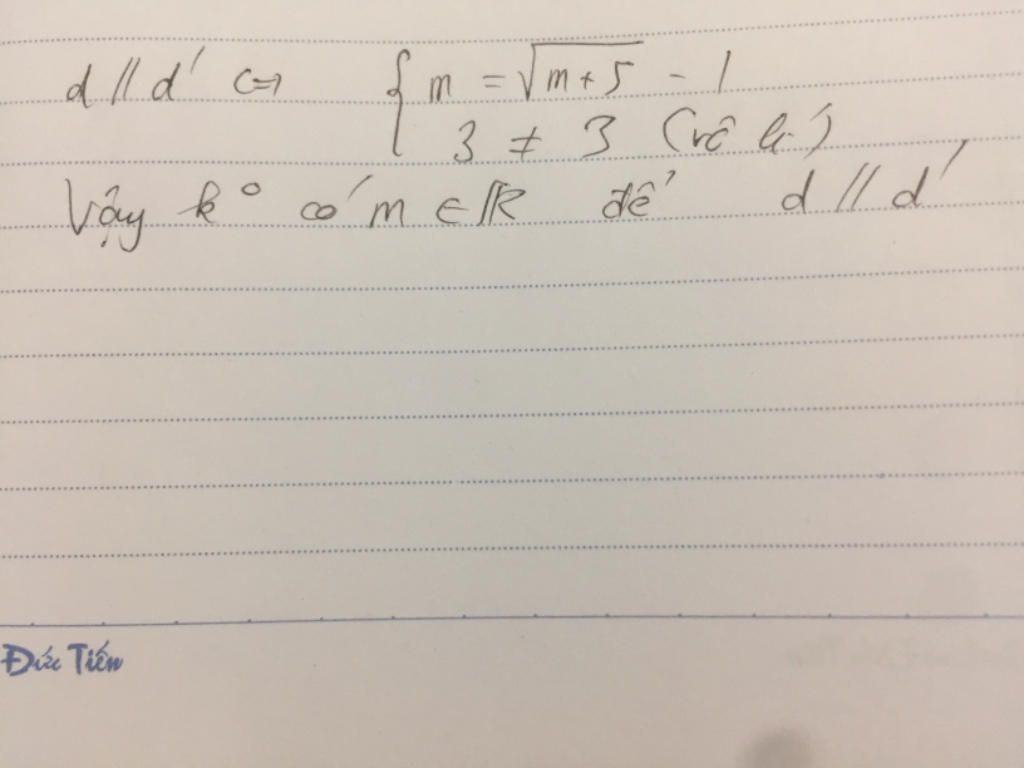 d // d' <=> { m = √(m+5) - 1
3 ≠ 3 (vô lí)
Vậy k° có m ∈ ℝ để d // d'
Đức Tiến